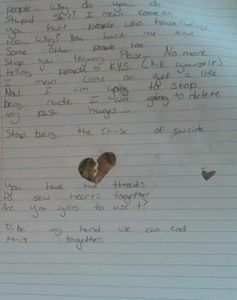 people why do you do
stupid shit? I mean come on
you hurt people like
too why? You hurt me and
Some other people too
Stop you trying Please. No more
telling people to K.Y.S. (kill yourself)
I mean come on get a life
Now I am going to stop
being rude I am going to delete
my past
Stop being the cause of suicide
You have the threads
to sew hearts together
Are you going to use it?
Take my hand we can end
this together